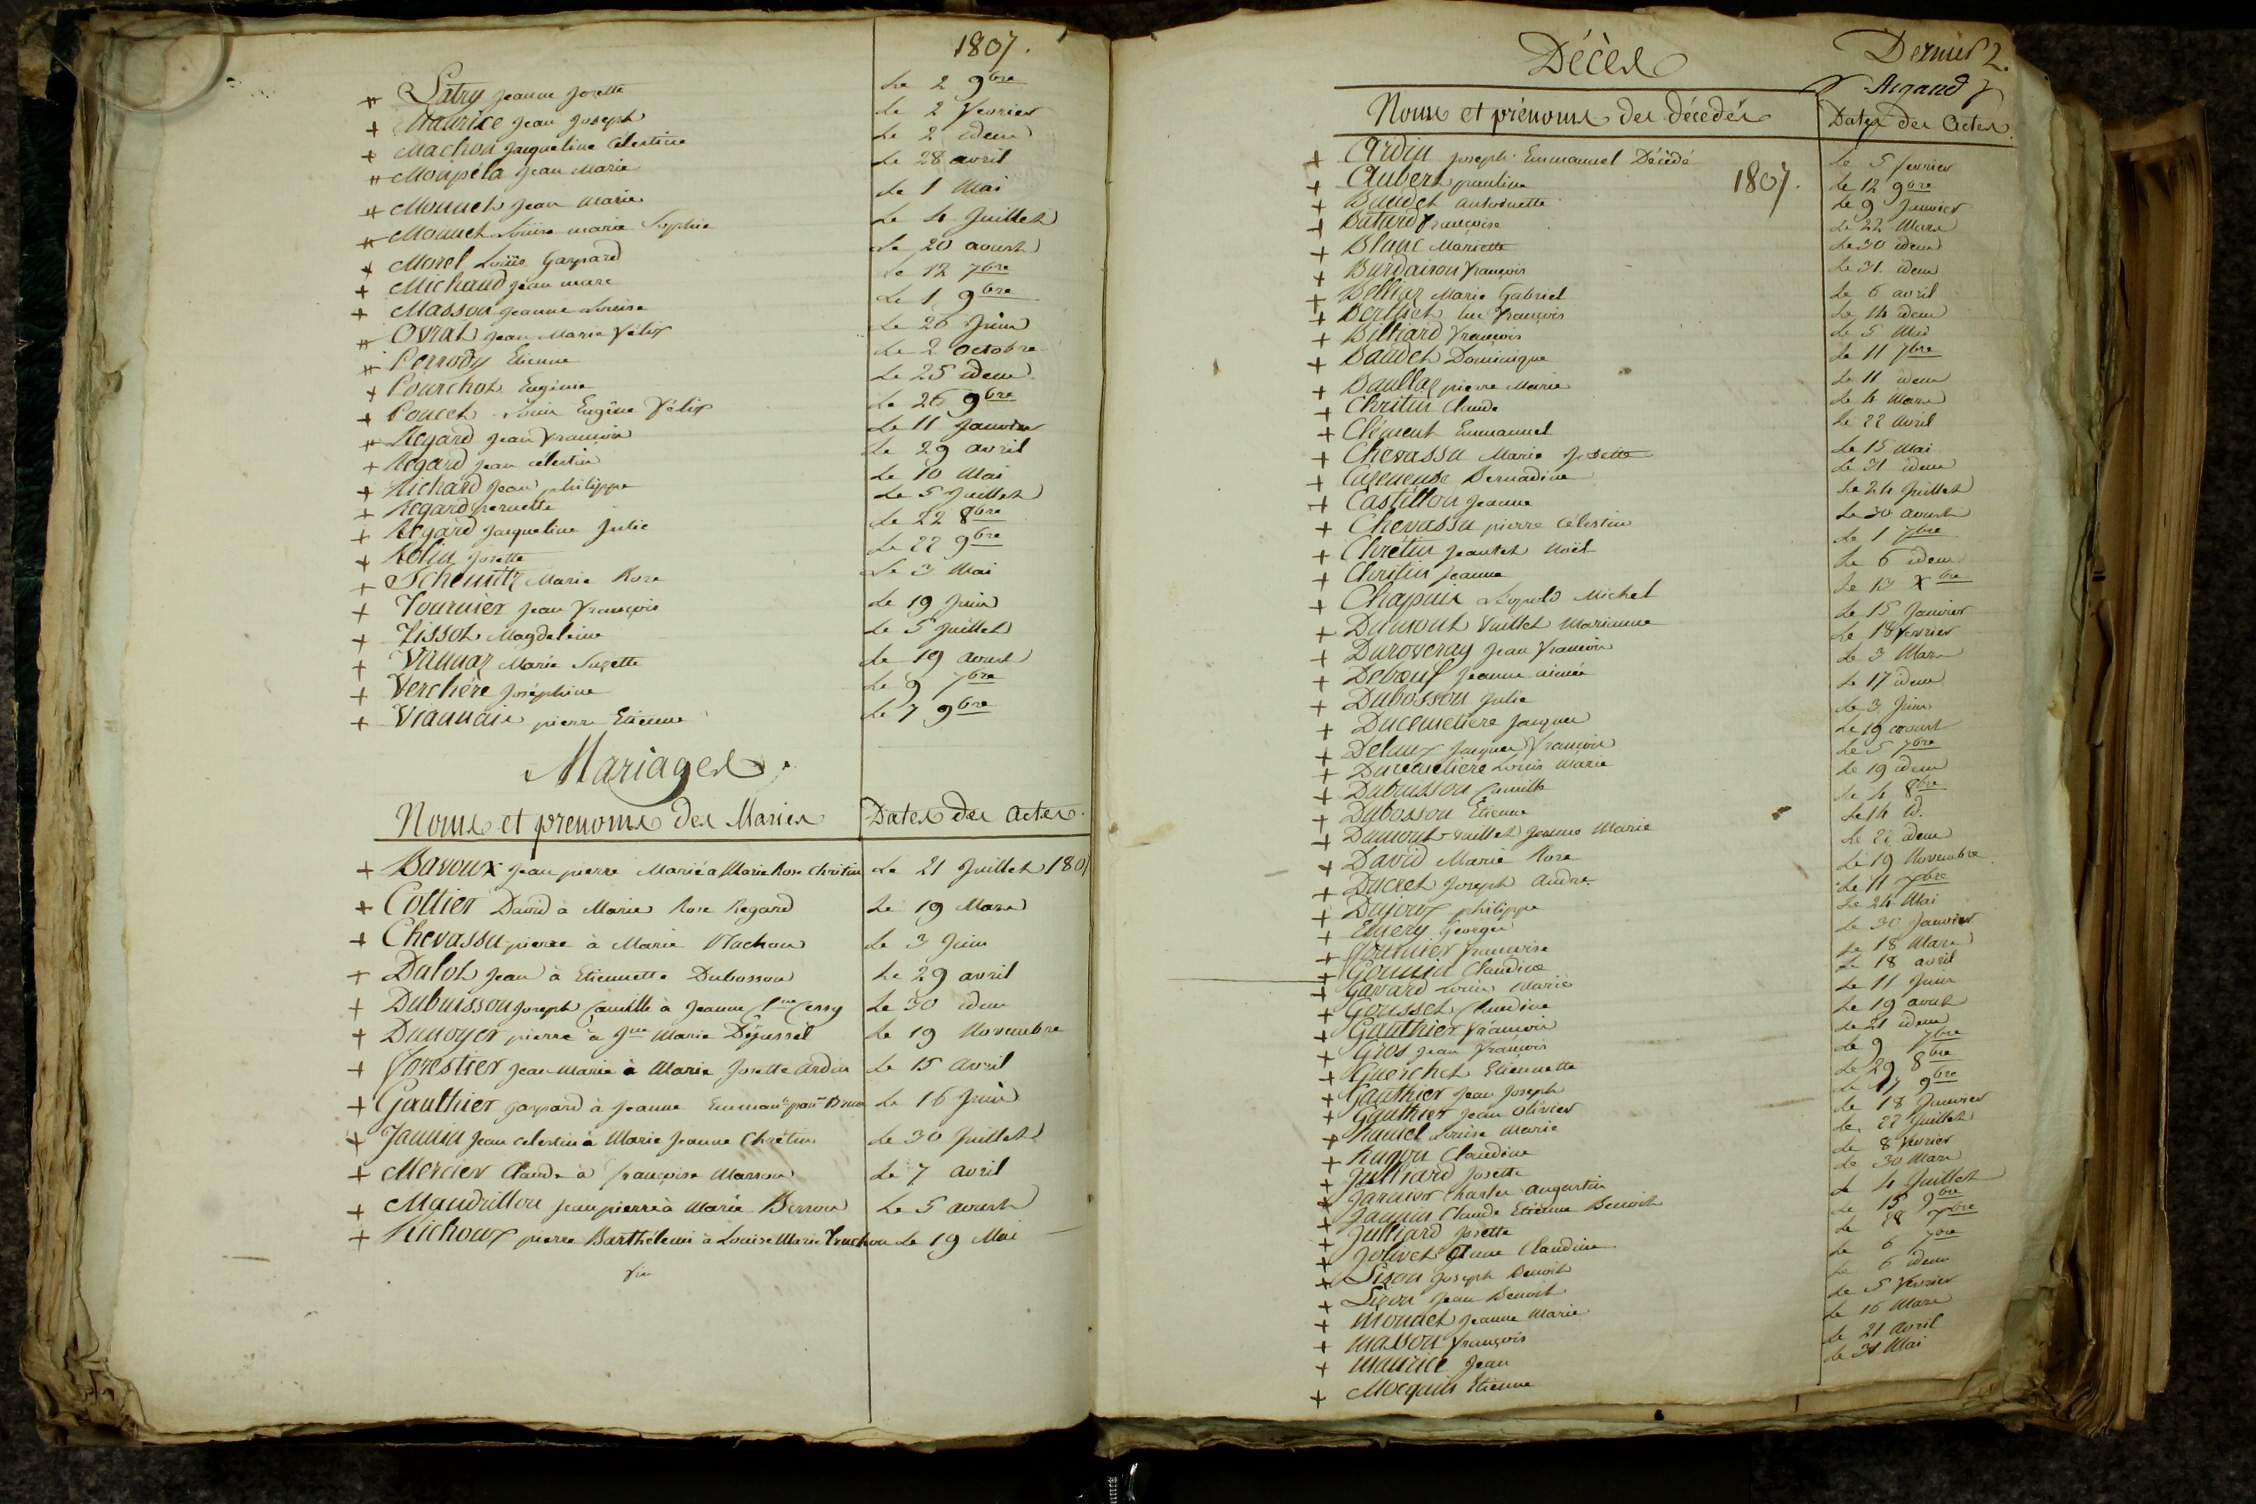 1807.
Latry Jeanne Josette Le 2 9bre
Maurice Jean Joseph Le 2 fevrier
Machon Jacqueline Célestine Le 2 idem
Moupéla Jean Marie Le 28 avril
Monnet Jean Marie Le 1 Mai
Monnet Louise marie Sophie Le 4 Juillet
Morel Louis Gaspard Le 20 aoust
Michaud Jean marc Le 12 7bre
Masson Jeanne Louise Le 1 9bre
Ovrat Jean Marie félix Le 26 Juin
Perrody Etienne Le 2 Octobre
Pourchot Eugénie Le 25 idem
Poncet Louis Eugène félix Le 26 9bre
Regard Jean françois Le 11 Janvier
Regard Jean célestin Le 29 avril
Richard Jean philippe Le 10 Mai
Regard pernette Le 5 Juillet
Regard Jacqueline Julie Le 22 8bre
Rolin Josette Le 22 9bre
Schemitz Marie Rose Le 3 Mai
Tournier Jean françois Le 19 Juin
Tissot Magdeleine Le 5 Juillet
Vannaz Marie Suzette Le 19 aoust
Verchère Joséphine Le 9 7bre
Viannain pierre Etienne Le 7 9bre
Mariages
Noms et prenoms des Mariés Dates des Actes.
Bavoux Jean pierre Marié à Marie Rose Christin Le 21 Juillet 180
Cottier David à Marie Rose Regard Le 19 Mars
Chevassu pierre à Marie Machon Le 3 Juin
Dalot Jean à Etiennette Dubosson Le 29 avril
Dubuisson Joseph Camille à Jeanne Cessy Le 30 idem
Dunoyer pierre à Marie Dépussel Le 19 Novembre
Forestier Jean Marie à Marie Josette Ardin Le 15 Avril
Gauthier Gaspard à Jeanne Le 16 Juin
Jannin Jean Celestin à Marie Jeanne Chrétin Le 30 Juillet
Mercier Claude à françoise Masson Le 7 avril
Mandrillon Jean pierre à Marie Berson Le 5 aoust
Richoux pierre Barthélemi à Louise Marie Le 19 Mai
fin
Décès
Dernier 2.
Rigaud
Noms et prénoms des décédés Dates des Actes.
Ardin Joseph Emmanuel Décédé Le 5 fevrier
1807.
Aubert pauline Le 12 9bre
Baudet Antoinette Le 9 Janvier
Batard françoise Le 22 Mars
Blanc Mariette Le 30 idem
Burdairon françois Le 31 idem
Belliaz Marie Gabriel Le 6 avril
Berthet luc françois Le 14 idem
Billiard françois Le 5 Mai
Baudet Dominique Le 11 7bre
Baullaz pierre Marie Le 11 idem
Christin Claude Le 4 Mars
Clément Emmanuel Le 22 Avril
Chevassu Marie Josette Le 15 Mai
Cazeneuse Bernadine Le 31 idem
Castillon Jeanne Le 24 Juillet
Chevassu pierre Célestin Le 30 aoust
Chrétin Jeantet Noël Le 1 7bre
Christin Jeanne Le 6 idem
Chapuis Léopold Michel Le 13 Xbre
Dumont Vuillet Marianne Le 15 Janvier
Duroveray Jean françois Le 18 fevrier
Debœuf Jeanne aimée Le 3 Mars
Dubosson Julie Le 17 idem
Ducimetière Jacques Le 3 Juin
Delaux Jacques françois Le 19 aoust
Ducimetière Louis Marie Le 5 7bre
Dubuisson Camille Le 19 idem
Dubosson Etienne Le 4 8bre
Dumont Vuillet Jeanne Marie Le 14 id.
David Marie Rose Le 22 idem
Ducret Joseph André Le 19 Novembre
Dujoux philippe Le 11 Xbre
Emery George Le 24 Mai
fournier françoise Le 30 Janvier
Gonnin Claudine Le 18 Mars
Gavard Louis Marie Le 18 avril
Gousset Claudine Le 11 Juin
Gauthier françois Le 19 aoust
Gros Jean françois Le 21 idem
Guerchet Etiennette Le 9 7bre
Gauthier Jean Joseph Le 29 8bre
Gauthier Jean Olivier Le 17 9bre
Hamel Louise Marie Le 18 Janvier
Hugon Claudine Le 22 Juillet
Julliard Josette Le 8 fevrier
Janier Charles Augustin Le 30 Mars
Jannin Claude Etienne Benoit Le 4 Juillet
Julliard Josette Le 15 9bre
Jolivet Anne Claudine Le 18 Xbre
Lison Joseph Benoit Le 6 7bre
Lison Jean Benoit Le 6 idem
Monnet Jeanne Marie Le 5 fevrier
Masson françois Le 16 Mars
Maurice Jean Le 21 Avril
Mocquin Etienne Le 31 Mai